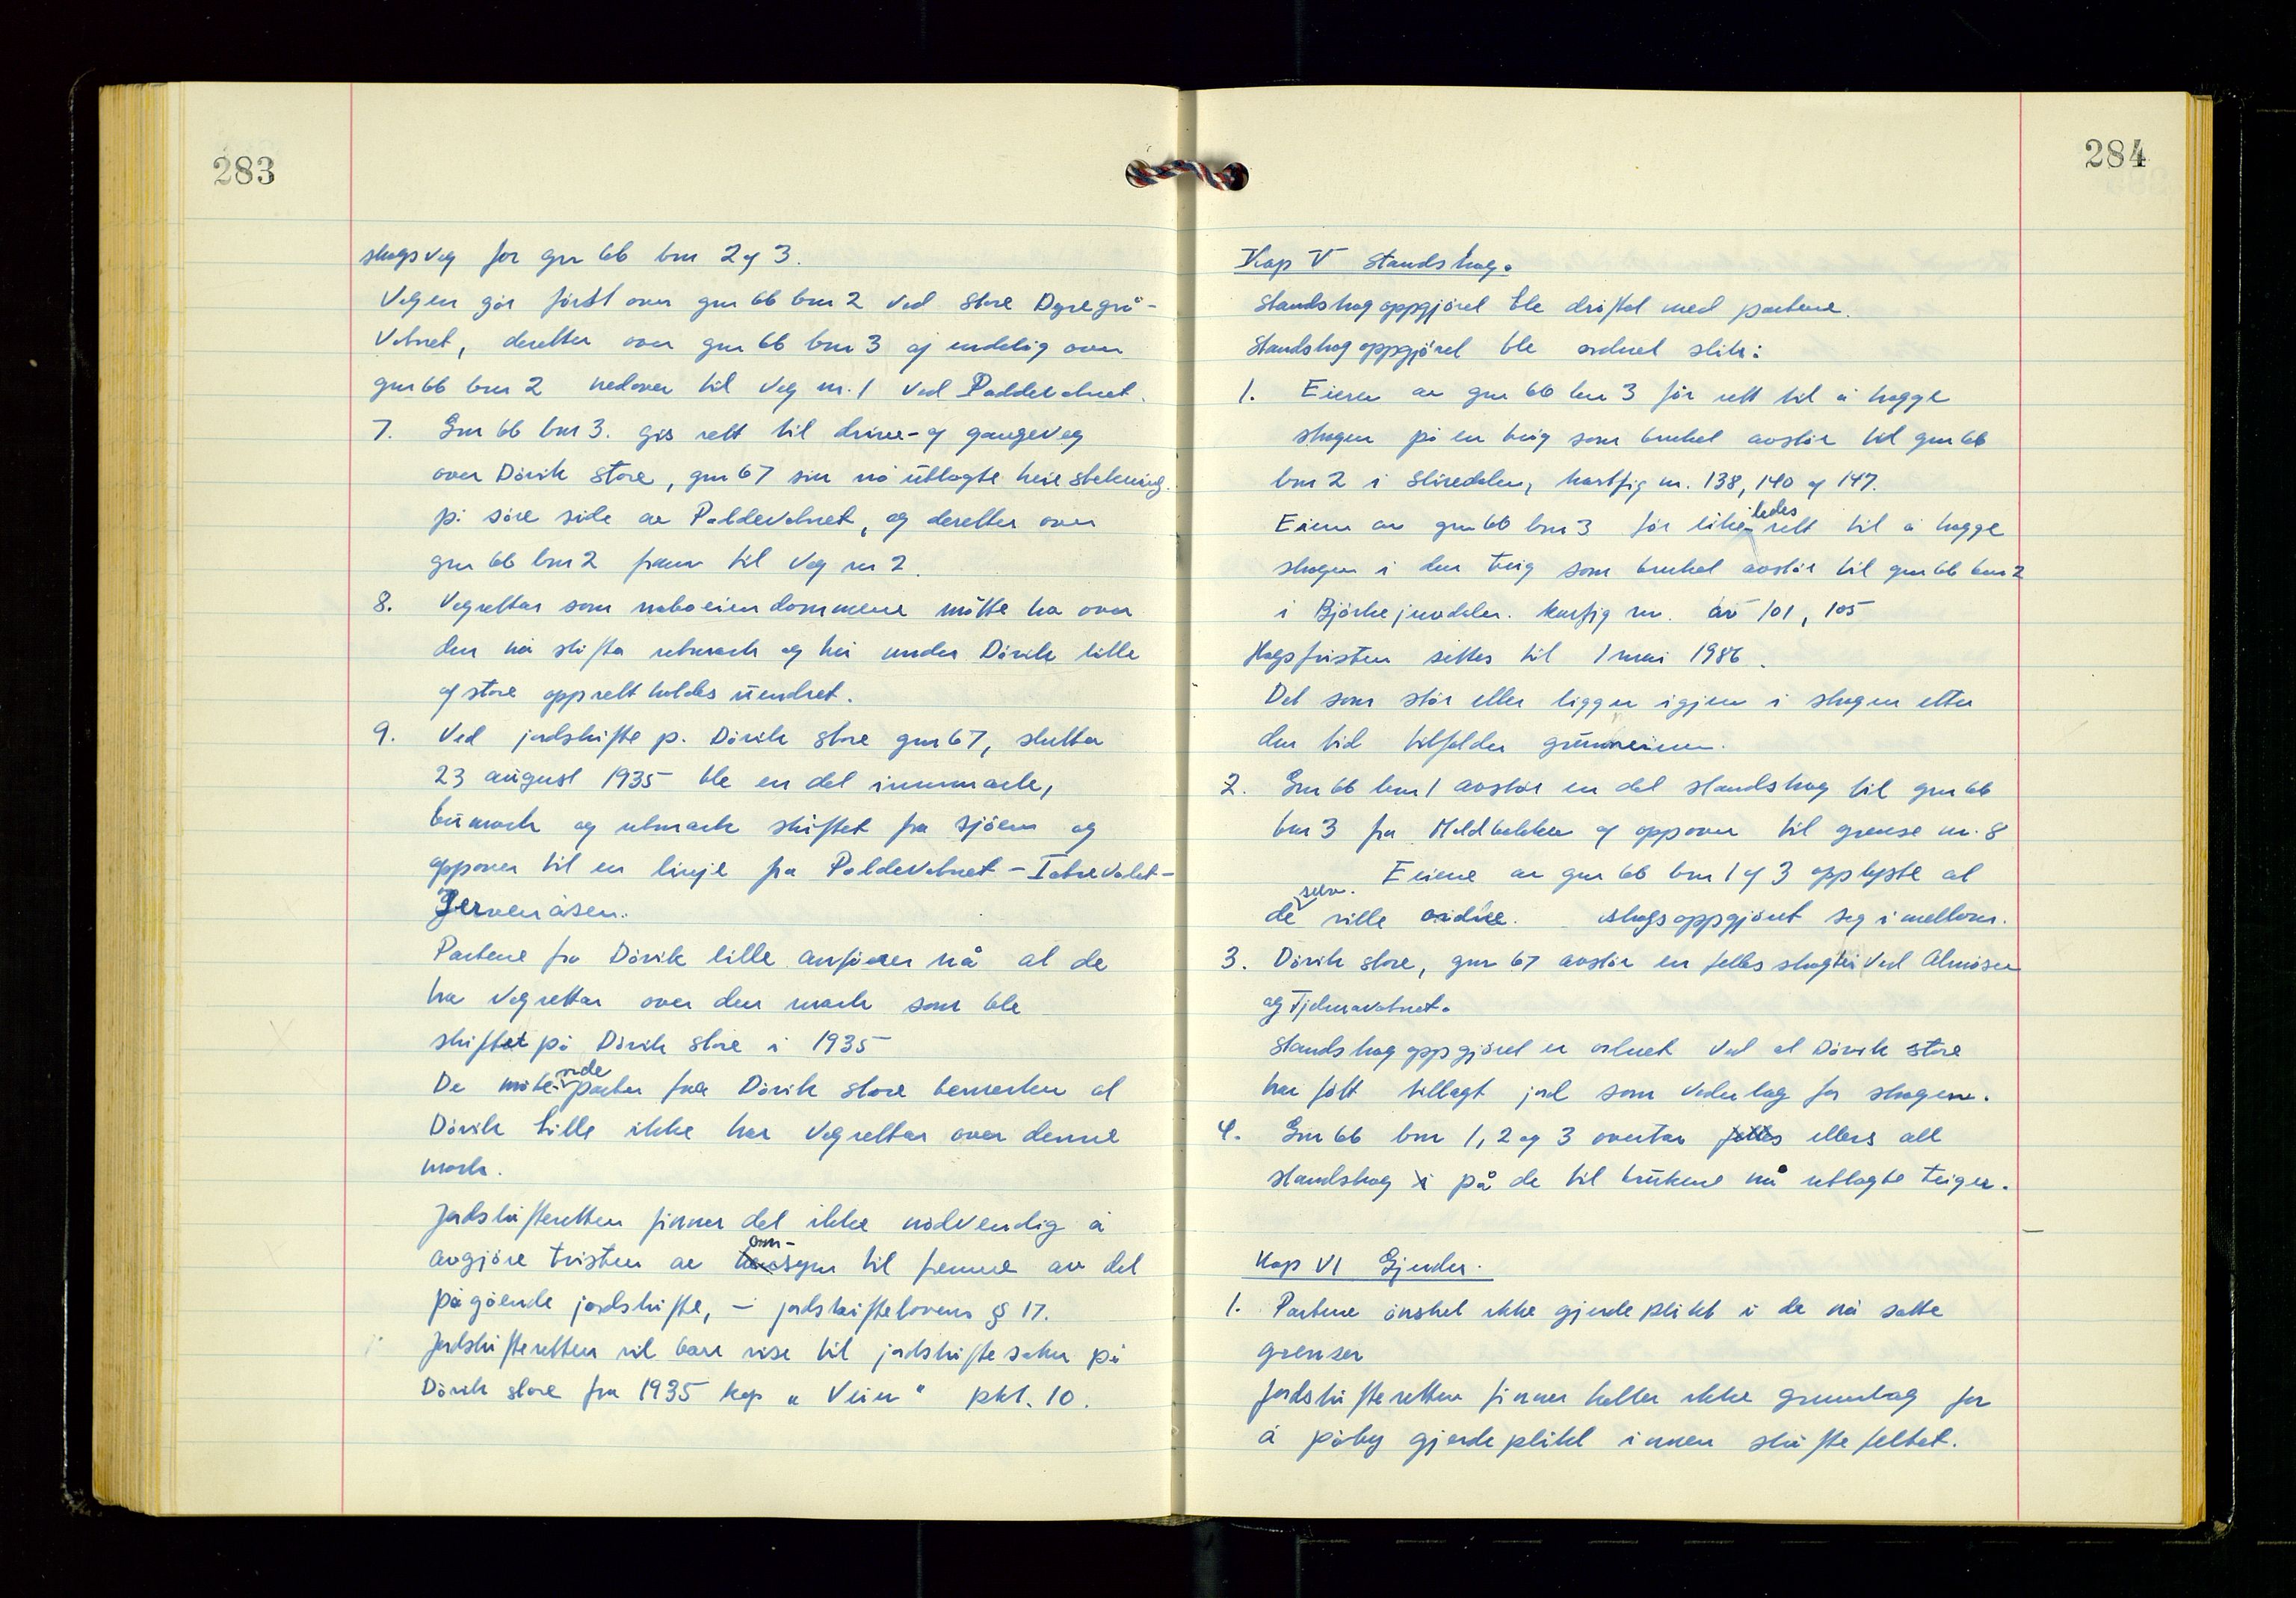 283
skogsveg for gnr 66 bnr 2 og 3.
Vegen går først over gnr 66 bnr 2 ved Store Dyregrø-
Vatnet, deretter over gnr 66 bnr 3 og endelig over
gnr 66 bnr 2 nedover til veg nr. 1 ved Paddevatnet.
7. Gnr 66 bnr 3. gis rett til drive- og gangeveg
over Dörik store, gnr 67 sin nå utlagte heiestrekning.
på søre side av Paddevatnet, og deretter over
gnr 66 bnr 2 fram til veg nr 2.
8. Vegrettar som naboeiendommene måtte ha over
den nå skifta utmark og hei under Dörik lille
og store opprettholdes uendret.
9. Ved jordskifte på Dörik store gnr 67, slutta
23 august 1935 ble en del innmark,
bumark og utmark skiftet fra sjöen og
oppover til en linje fra Paddevatnet -
Jervenåsen.
Partene fra Dörik lille anförer nå at de
ha vegrettar over den mark som ble
skiftet på Dörik store i 1935
De möte partar fra Dörik store bemerker at
Dörik Lille ikke har vegrettar over denne
mark.
Jordskifteretten finner det ikke nödvendig å
avgjöre tvisten av omsyn til fremme av det
pågående jordskifte, - jordskiftelovens § 17.
Jordskifteretten vil bare vise til jordskiftesaken på
Dörik store fra 1935 kap „ Veier " pkt. 10.
284
Kap V Standskog.
Standskogoppgjöret ble dröftet med partene.
Standskogoppgjöret ble ordnet slik:
1. Eieren av gnr 66 bnr 3 får rett til å hogge
skogen på en teig som bruket avstår til gnr 66
bnr 2 i Sliredalen, kartfig nr. 138, 140 og 147.
Eieren av gnr 66 bnr 3 får likeledes rett til å hogge
skogen i den teig som bruket avstår til gnr 66 bnr 2
i kartfig nr. av 101, 105
Hogsfristen settes til 1 mai 1986.
Det som står eller ligger igjen i skogen etter
den tid tilfaller grunneieren.
2. Gnr 66 bnr 1 avstår en del standskog til gnr 66
bnr 3 fra Moldbekken og oppover til grense nr. 8
Eierne av gnr 66 bnr 1 og 3 opplyste at
de selv. ville ordne. skogsoppgjöret seg i mellom.
3. Dörik store, gnr 67 avstår en felles skogtei ved Almåsen
og Tjelmavatnet.
Standskogoppgjöret er ordnet ved at Dörik store
har fått tillagt jord som vederlag for skogen.
4. Gnr 66 bnr 1, 2 og 3 overtar felles ellers all
standskog i på de til brukene nå utlagte teiger.
Kap VI Gjerder.
1. Partene önsket ikke gjerdeplikt i de nå satte
grenser
Jordskifteretten finner heller ikke grunnlag for
å påby gjerdeplikt innen skiftefeltet.